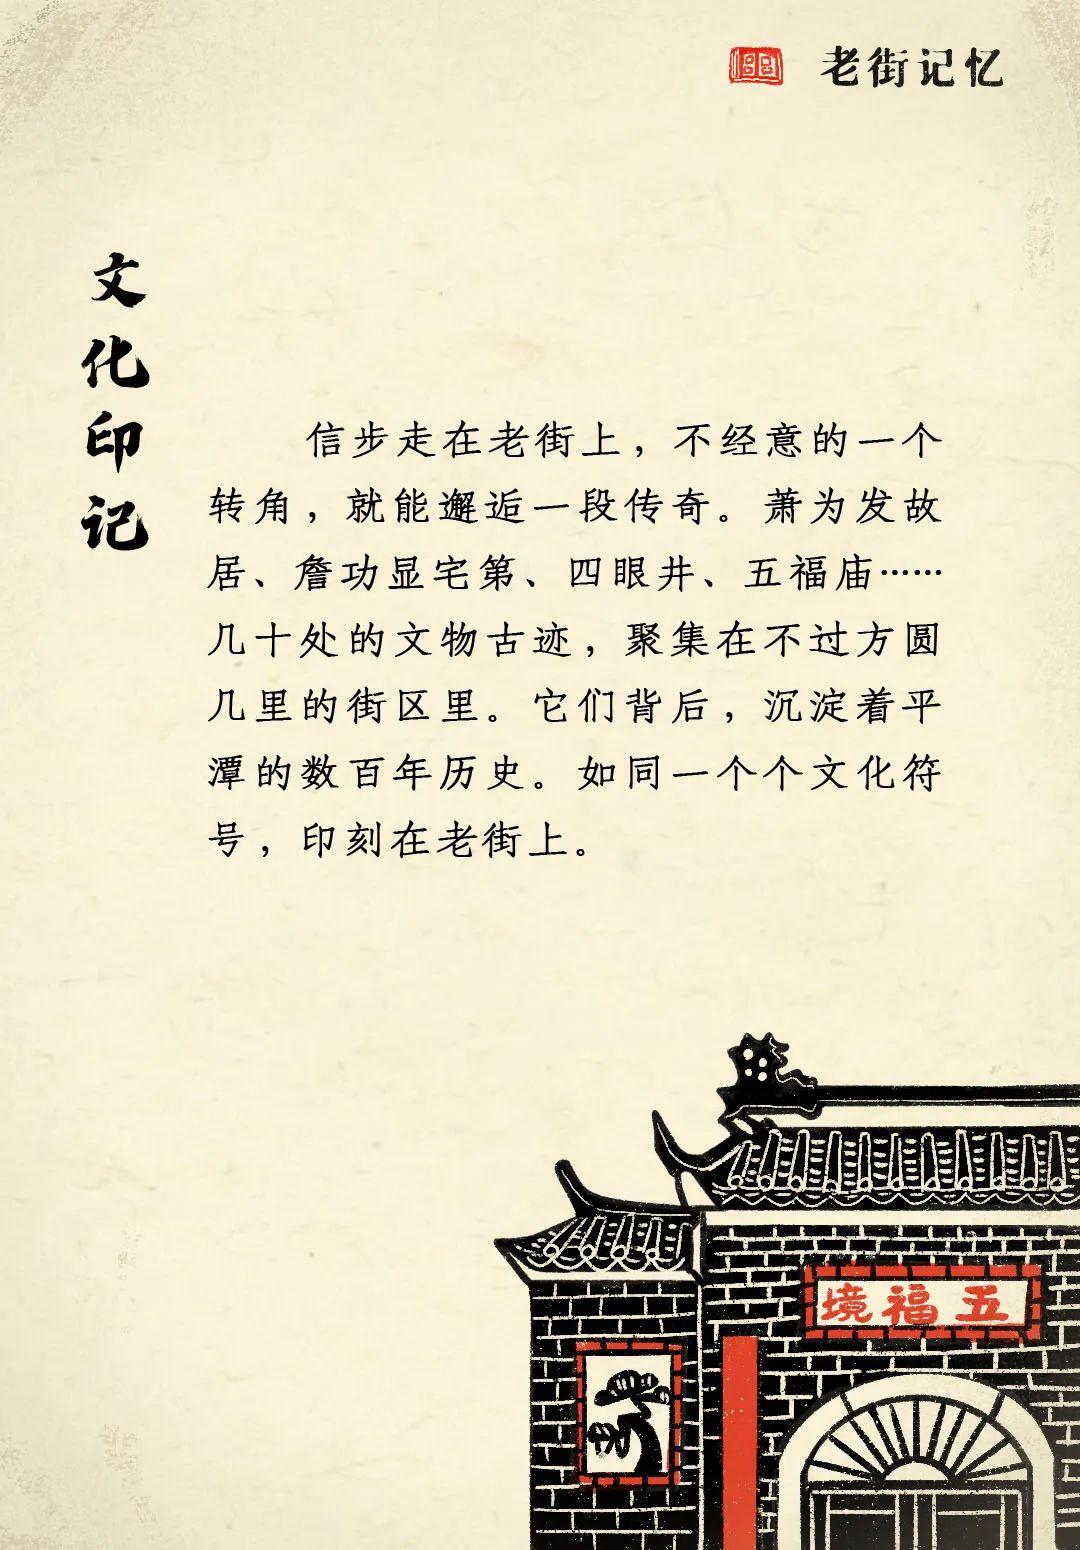 老街记忆
文化印记
信步走在老街上，不经意的一个
转角，就能邂逅一段传奇。萧为发故
居、詹功显宅第、四眼井、五福庙……
几十处的文物古迹，聚集在不过方圆
几里的街区里。它们背后，沉淀着平
潭的数百年历史。如同一个个文化符
号，印刻在老街上。
五福境